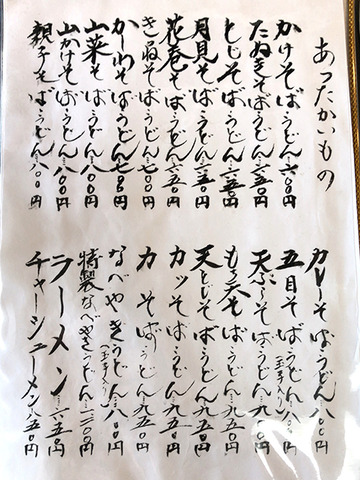 あったかいもの
かけそば・うどん…六〇〇円
たぬきそば・うどん…六五〇円
とじそば・うどん…六五〇円
月見そば・うどん…六五〇円
花巻そば・うどん…六五〇円
きつねそば・うどん…七〇〇円
かしわそば・うどん…七五〇円
山菜そば・うどん…八〇〇円
山かけそば・うどん…八〇〇円
親子そば・うどん…八〇〇円
カレーそば・うどん…八〇〇円
五目そば・うどん…八〇〇円
(玉子入り)
天ぷらそば・うどん…九〇〇円
天そば・うどん…九五〇円
天とじそば・うどん…九五〇円
カツそば・うどん…九五〇円
力そば・うどん…九五〇円
なべやきうどん…八〇〇円
(玉子入り)
特製なべやきうどん
ラーメン…六五〇円
チャーシューメン…八五〇円